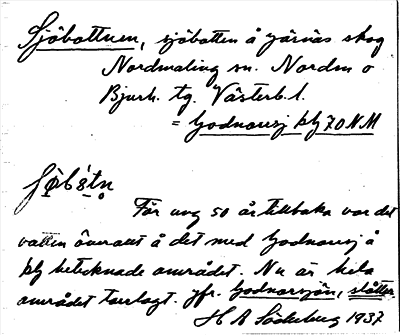 Sjöbottnen, sjöbotten å Järnäs skog
Nordmaling sn. Nordm o
Bjurh. tg. Västerb. l.
= Godnarsj blj 70 NM
För uvg 50 år tillbaka var det
vatten överallt å det med Godnarsj å
blj betecknade området. Nu är hela
området torrlagt. Jfr. Godnarsjön, slåtter.
H A Söderberg 1937